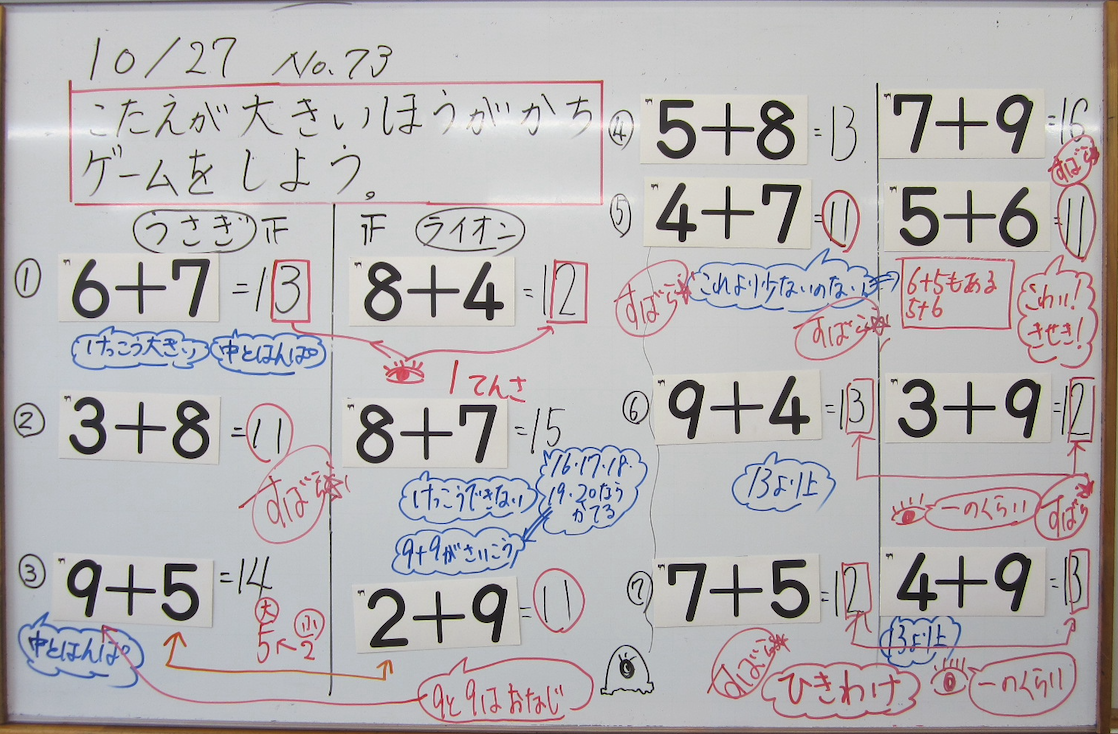 10/27 No.73
こたえが大きいほうがかち
ゲームをしよう。
うさぎ 正
正 ライオン
① 6+7=13
8+4=12
けっこう大きい
中とはんぱ
1てんさ
② 3+8=11
8+7=15
すばらしい
けっこうできない
16・17・18・
19・20なら
かてる
9+9がさいこう
③ 9+5=14
2+9=11
大 小
5 2
中とはんぱ
9と9はおなじ
④ 5+8=13
7+9=16
⑤ 4+7=11
5+6=11
これより少ないのない
6+5もある
5+6
こわい!
きせき!
⑥ 9+4=13
3+9=12
13より上
一のくらい
⑦ 7+5=12
4+9=13
13より上
ひきわけ
一のくらい